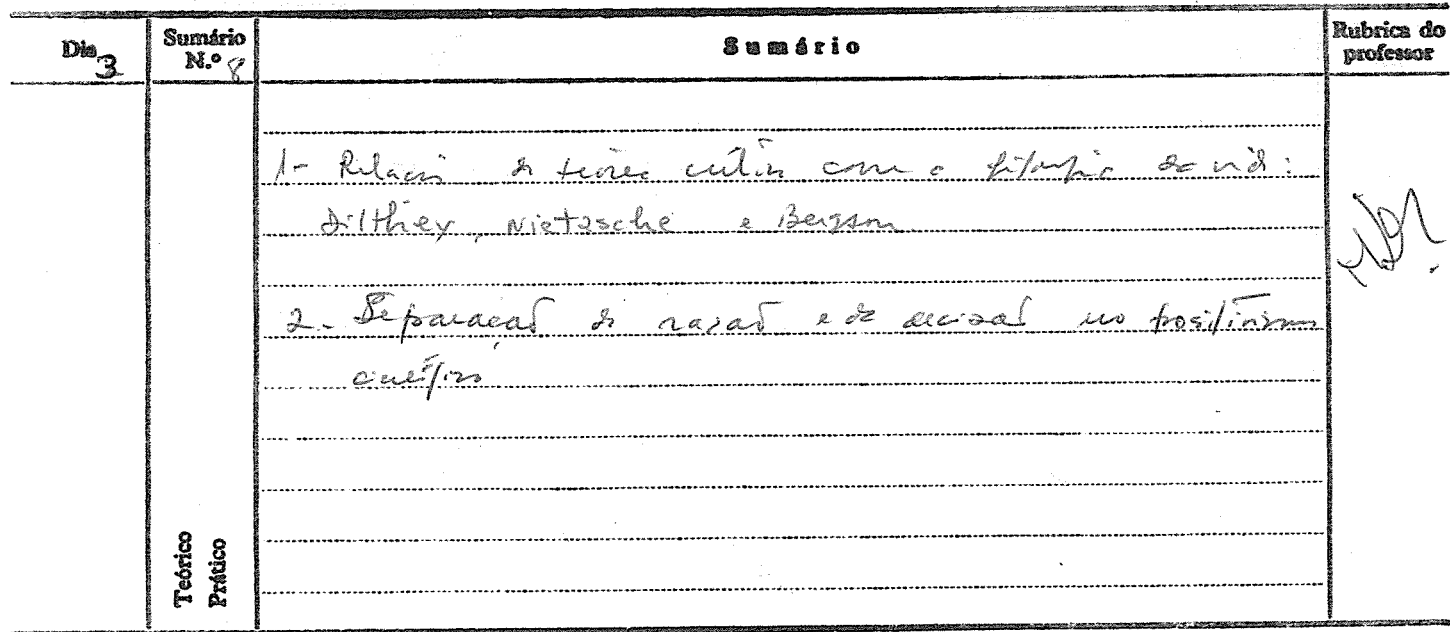 Dia 3
Sumário N.º 8
Sumário
Rubrica do professor
1- Relação da teoria crítica com a filosofia da vida:
Dilthey, Nietzsche e Bergson
2- Separação da razão e da decisão no positivismo
científico
Teórico
Prático